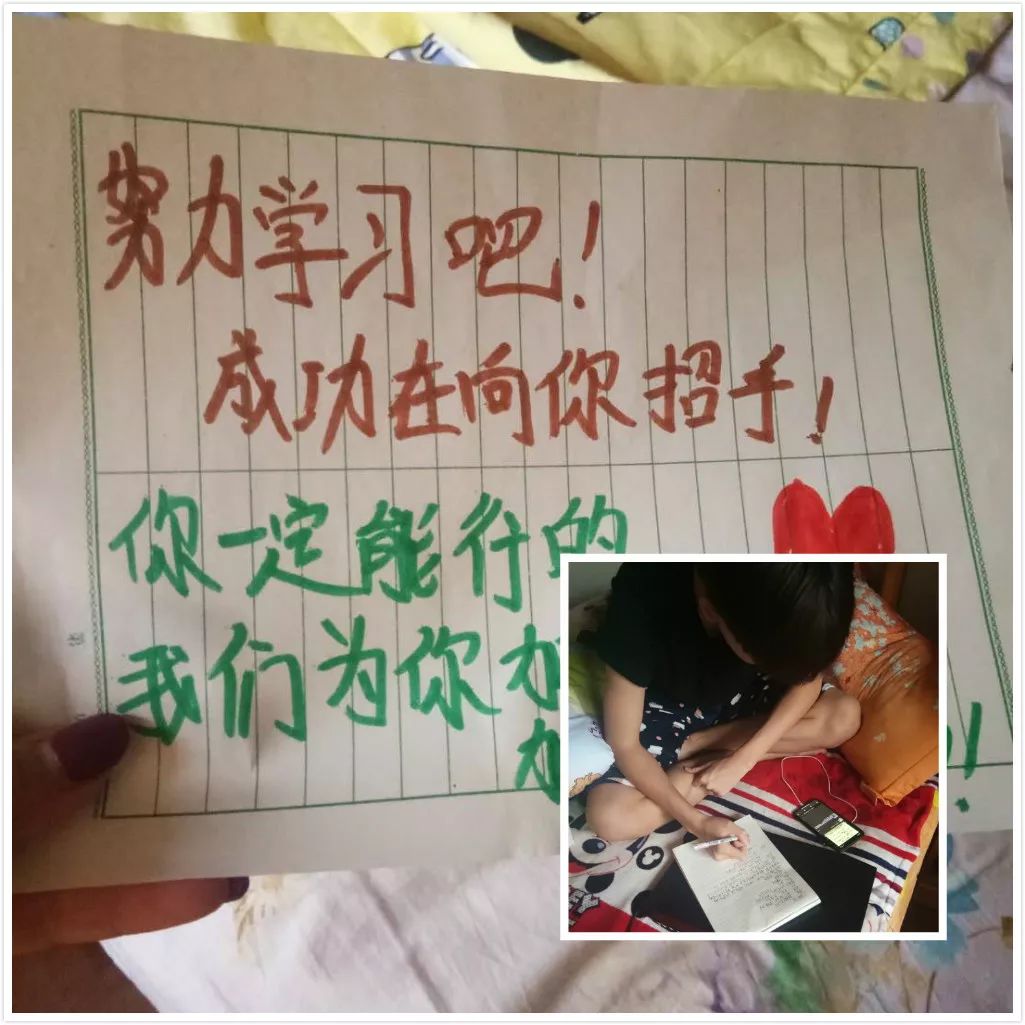 努力学习吧！
成功在向你招手！
你一定能行的
我们为你加
加
！